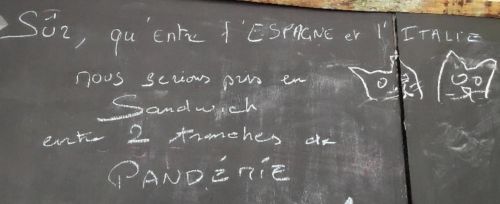 SÛR, qu'Entre l'ESPAGNE et l'ITALIE
nous serions pris en
Sandwich
entre 2 tranches de
PANDÉMIE